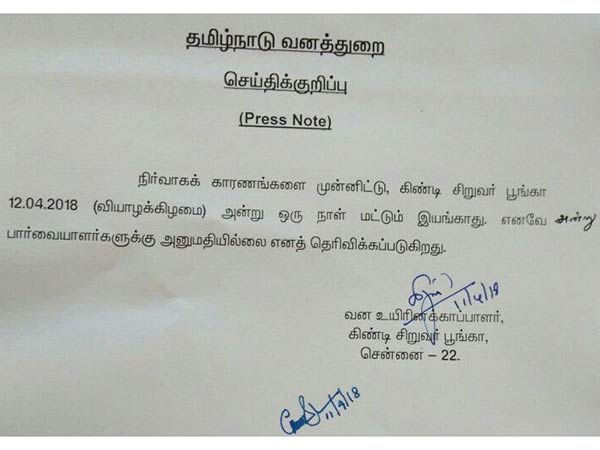 தமிழ்நாடு வனத்துறை
செய்திக்குறிப்பு
(Press Note)
நிர்வாகக் காரணங்களை முன்னிட்டு, கிண்டி சிறுவர் பூங்கா
12.04.2018 (வியாழக்கிழமை) அன்று ஒரு நாள் மட்டும் இயங்காது. எனவே அன்று
பார்வையாளர்களுக்கு அனுமதியில்லை எனத் தெரிவிக்கப்படுகிறது.
11/4/18
வன உயிரினக்காப்பாளர்,
கிண்டி சிறுவர் பூங்கா,
சென்னை – 22.
11/4/18